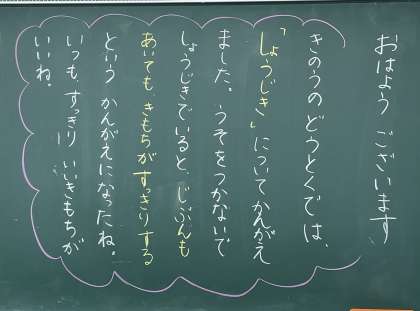 おはよう ございます
きのうの どうとくでは、
「しょうじき」について かんがえ
ました。 うそを つかないで
しょうじきで いると、 じぶんも
あいても、 きもちが すっきりする
という かんがえに なったね。
いつも すっきり いい きもちが
いいね。